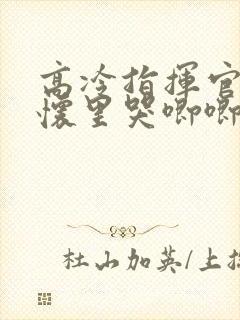 高冷指揮官
懷里哭唧唧
杜山加英/上